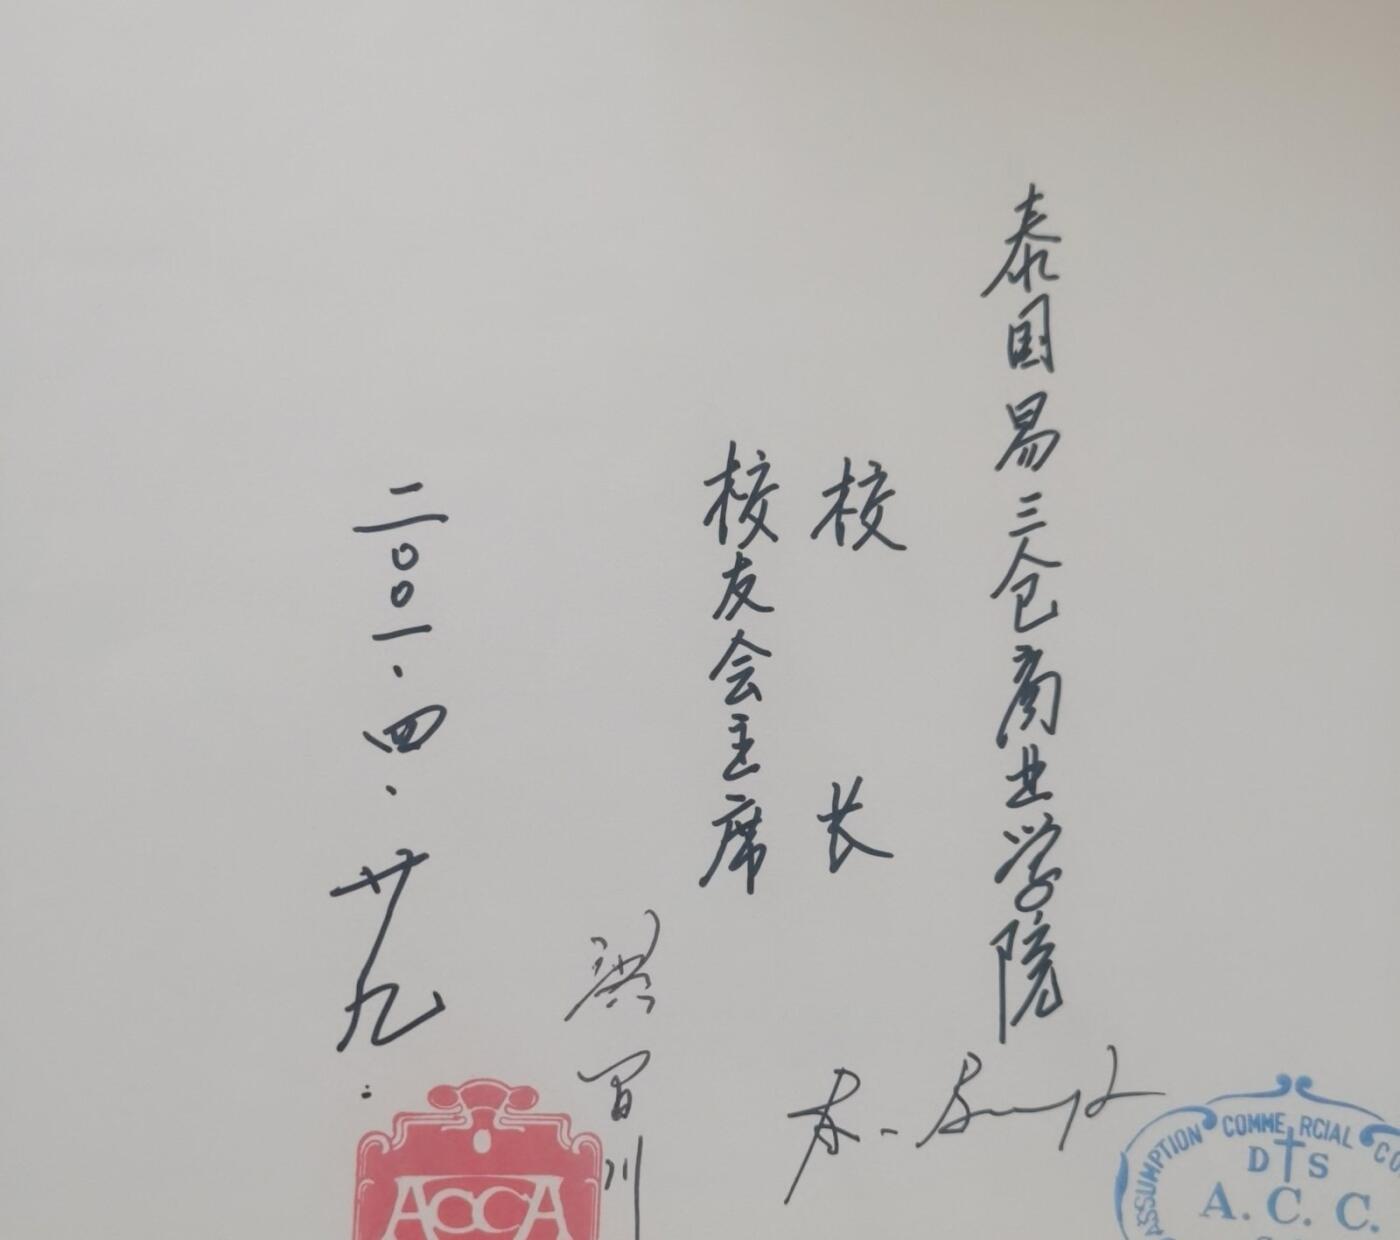 泰国易三仓商业学院
校长
校友会主席
二〇〇一.四.廿九.
ACCA
ASSUMPTION COMMERCIAL CO
D S
A. C. C.